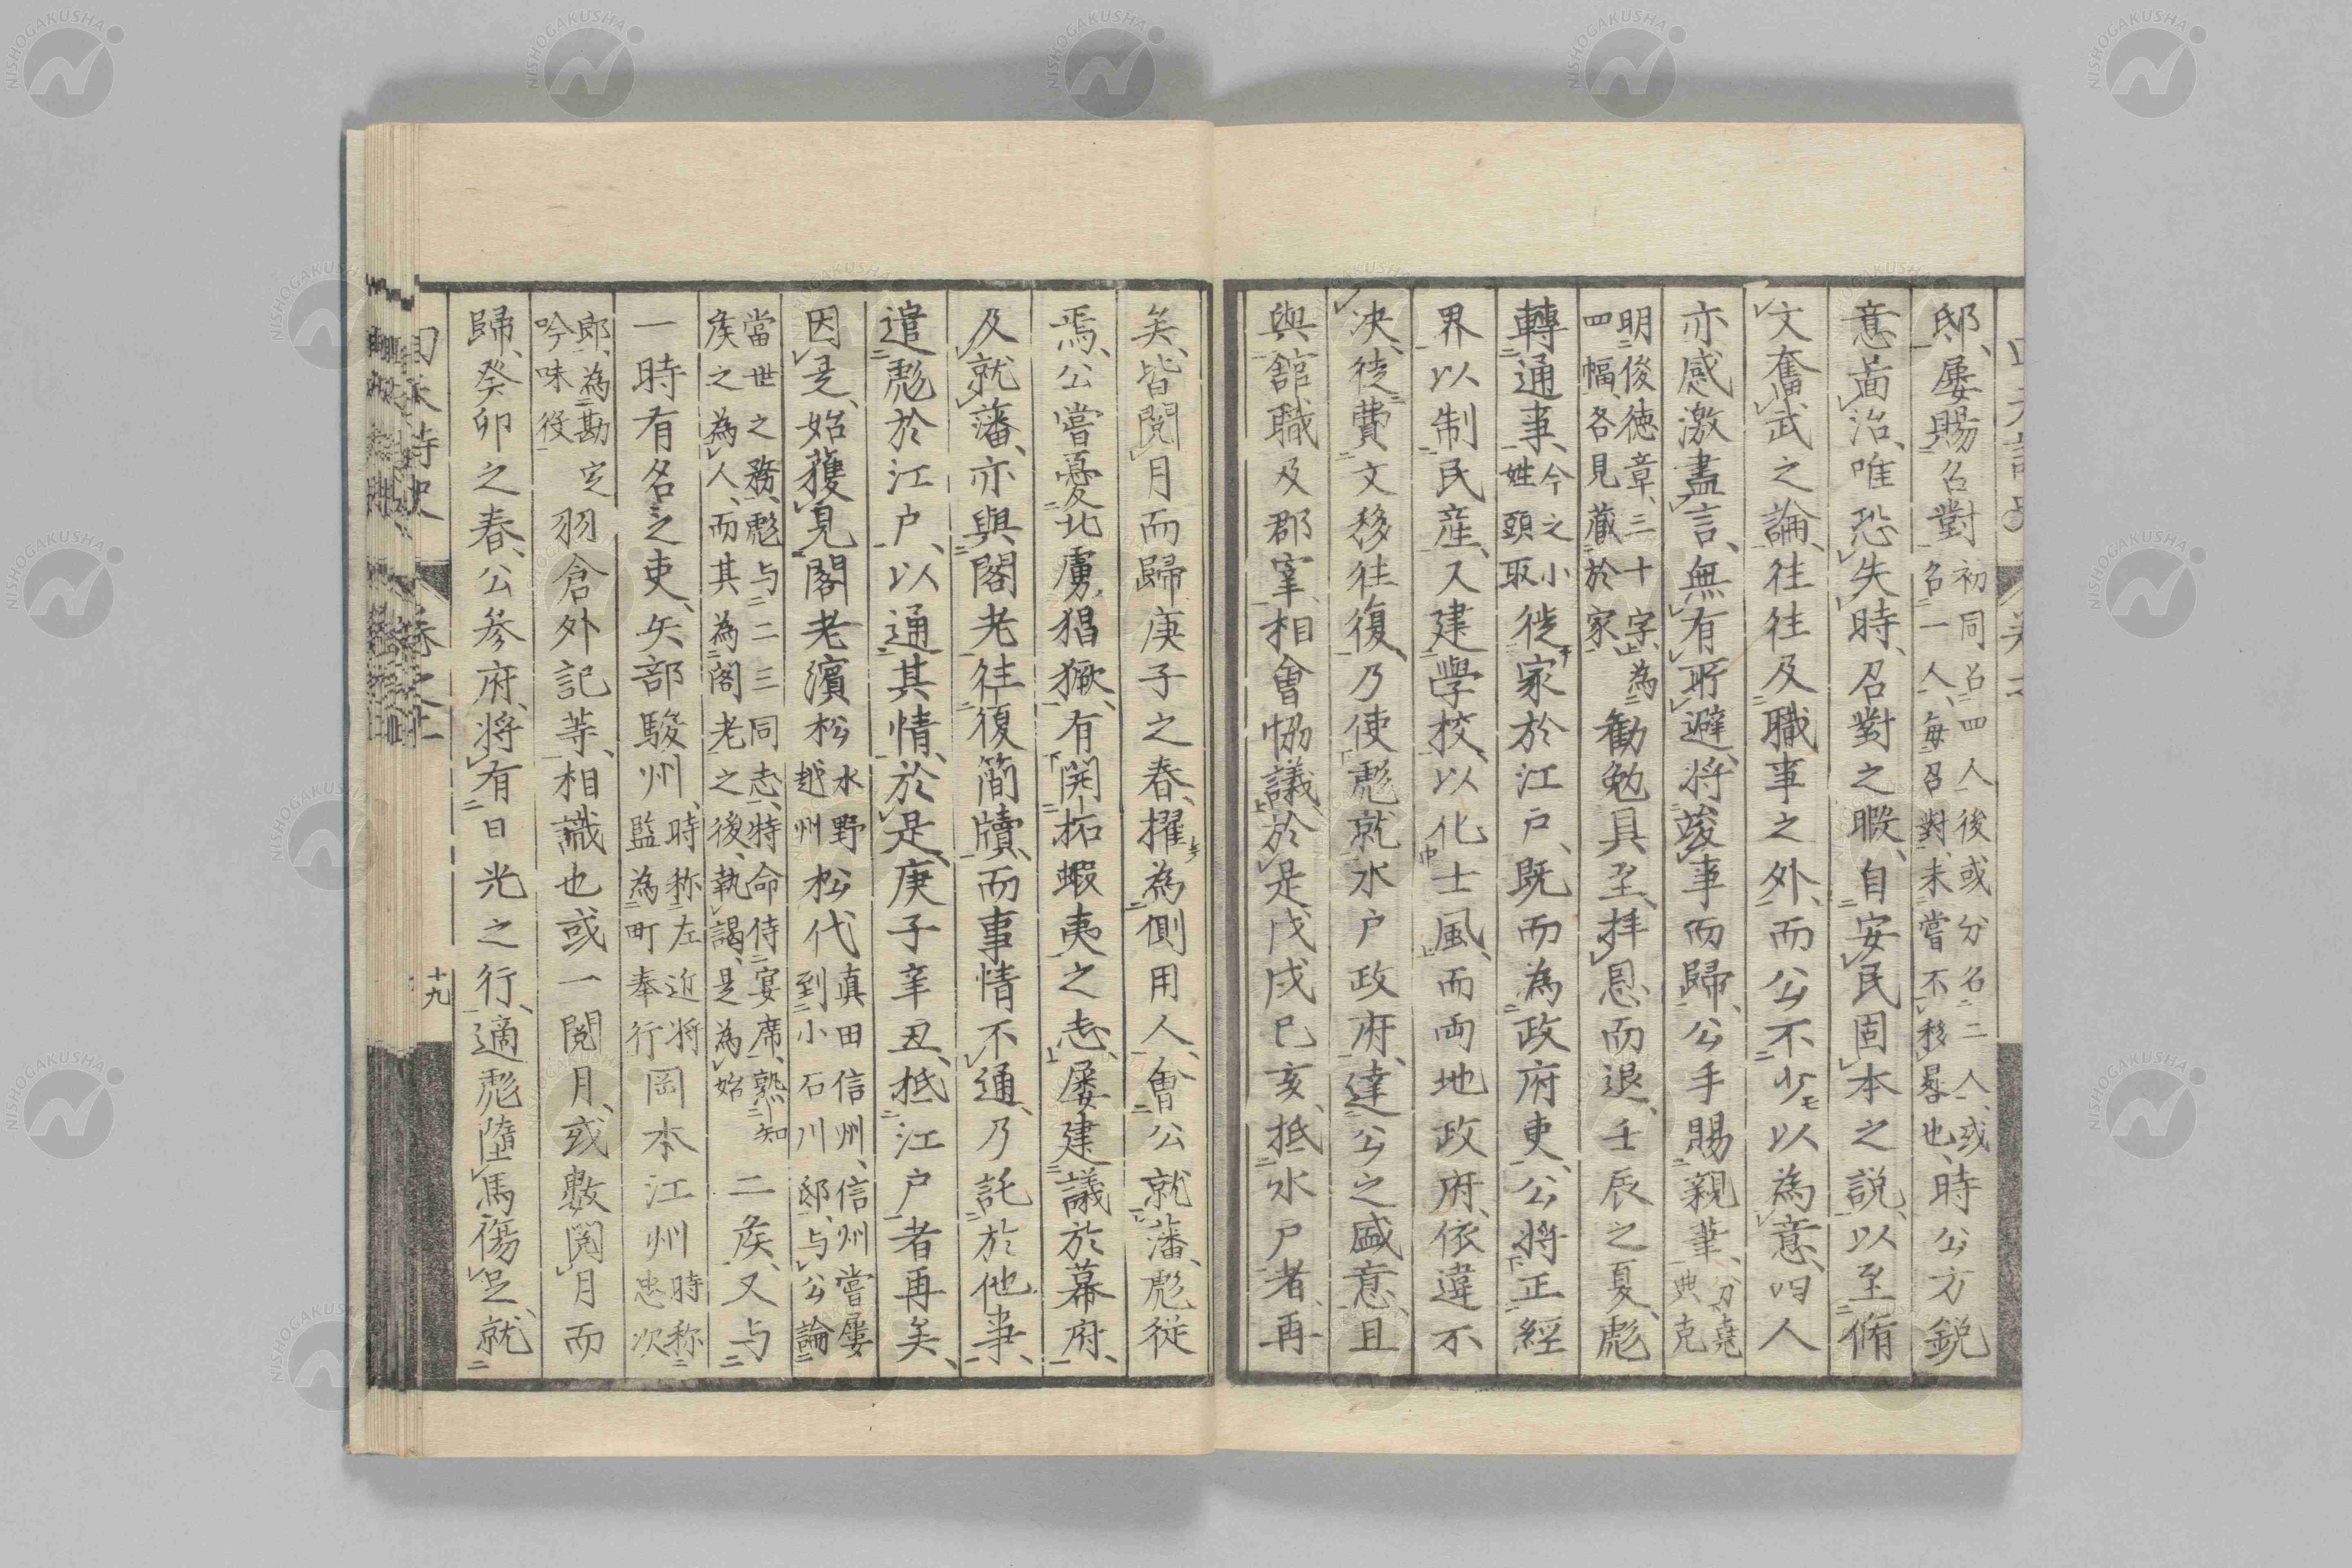 邸、屢賜召對初同召四人後或分召二人、或召一人、毎召對、未嘗不移晷也、時公方鋭
意啚治、唯恐失時、召對之暇、自安民固本之説、以至脩
文奮武之論、往往及職事之外、而公不少以為意、四人
亦感激盡言、無有所避、将竣事而歸、公手賜親筆、分堯典克
明俊徳章、三十字、為四幅、各見蔵於家、勸勉具至、拝恩而退、壬辰之夏、彪
轉通事、今之小姓頭取徙家於江戸、既而為政府吏、公将正經
界以制民産、又建學校、以化士風、而両地政府、依違不
决、徒費文移往復、乃使彪就水戸政府、達公之盛意、且
與舘職及郡宰、相會恊議、於是戊戌己亥、抵水戸者、再
矣、皆閲月而歸庚子之春、擢為側用人、會公就藩、彪従
焉、公嘗憂北虜猖獗、有開拓蝦夷之志、屢建議於幕府、
及就藩、亦與閣老往復簡牘、而事情不通、乃託於他事、
遣彪於江戸、以通其情、於是、庚子辛丑、抵江戸者再矣、
因是、始獲見閣老濱松水野越州松代真田信州、信州嘗屢到小石川邸、与公論
當世之務、彪与二三同志、特命侍宴席、熟知矦之為人、而其為閣老之後、執謁、是為始二矦、又与
一時有名之吏、矢部駿州、時称左近将監為町奉行岡本江州時称忠次
郎、為勘定吟味役羽倉外記等、相識也或一閲月、或數閲月而
歸、癸卯之春、公参府、将有日光之行、適彪墮馬傷足、就
囘天詩史
巻之上
十九